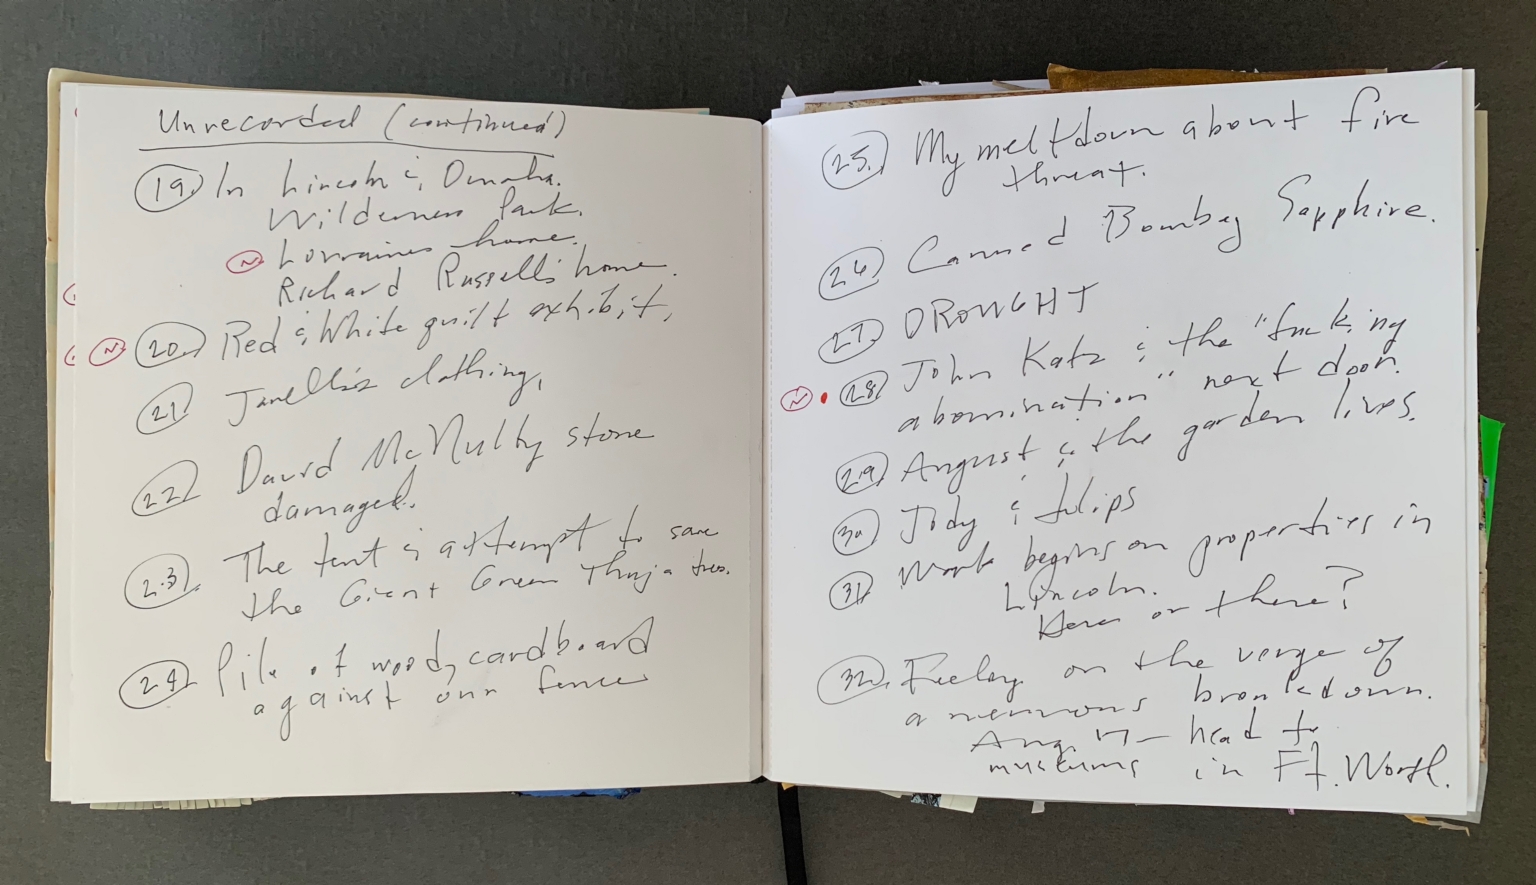 Unrecorded (continued)
19. In Lincoln & Omaha.
Wilderness Park.
N Lorraines home.
Richard Russell's home.
N 20. Red & White quilt exhibit.
21. Janelle's clothing.
22. David McNulty stone
damaged.
23. The tent & attempt to save
the Giant Green Thuja tree.
24. Pile of wood, cardboard
against our fence
25. My meltdown about fire
threat.
26. Canned Bombay Sapphire.
27. DROUGHT
N 28. John Katz & the "fucking
abomination" next door.
29. August & the garden lives.
30. Jody & tulips
31. Work begins on properties in
Lincoln.
Here or there?
32. Feeling on the verge of
a nervous breakdown.
Aug. 17 — head to
museums in Ft. Worth.